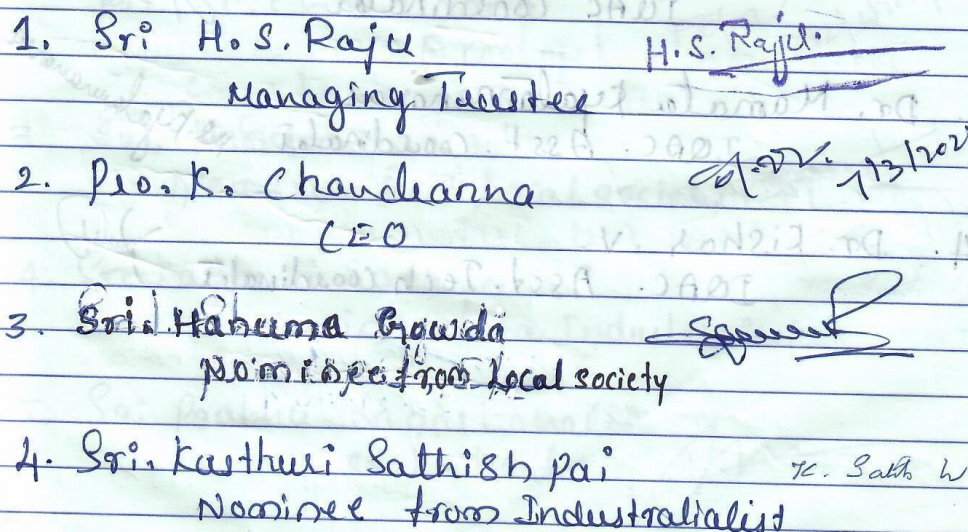 1. Sri H.S. Raju H.S. Raju.
Managing Trustee
2. Pro. K. Chandranna
CEO
3. Sri. Hanuma Gowda
Nominee from Local society
4. Sri. Kasthuri Sathish Pai K.
Nominee from Industralialist